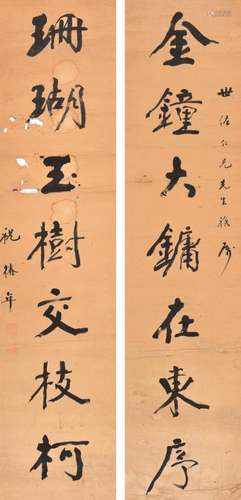 金鐘大鏞在東序
世佐仁兄先生雅屬
珊瑚玉樹交枝柯
祝椿年